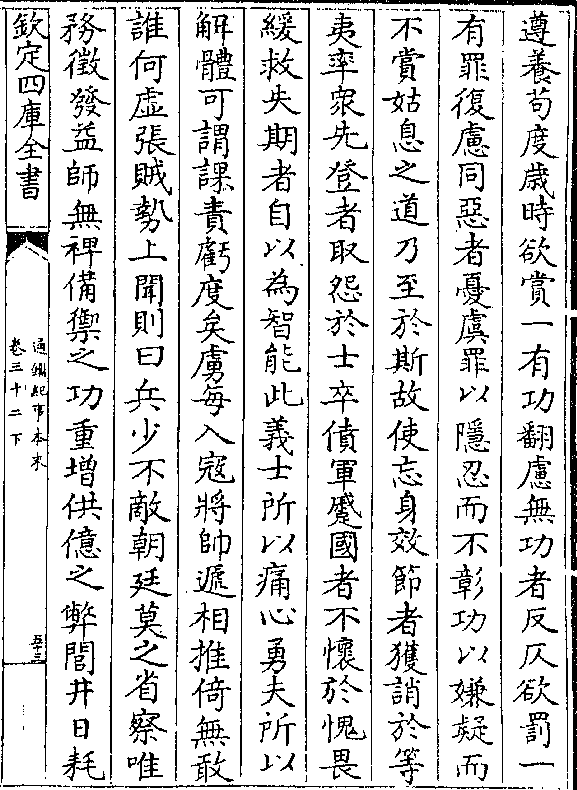 遵養苟度歳時欲賞一有功翻慮無功者反仄欲罰一
有罪復慮同惡者憂虞罪以隱忍而不彰功以嫌疑而
不賞姑息之道乃至於斯故使忘身效節者獲誚於等
夷率衆先登者取怨於士卒僨軍蹙國者不懷於愧畏
緩救失期者自以為智能此義士所以痛心勇夫所以
解體可謂課責虧度矣虜每入寇將帥遞相推倚無敢
誰何虛張賊勢上聞則曰兵少不敵朝廷莫之省察唯
務徵發益師無裨備禦之功重増供億之弊閭井日耗
欽定四庫全書
通鑑紀事本末
卷三十二下
五十三